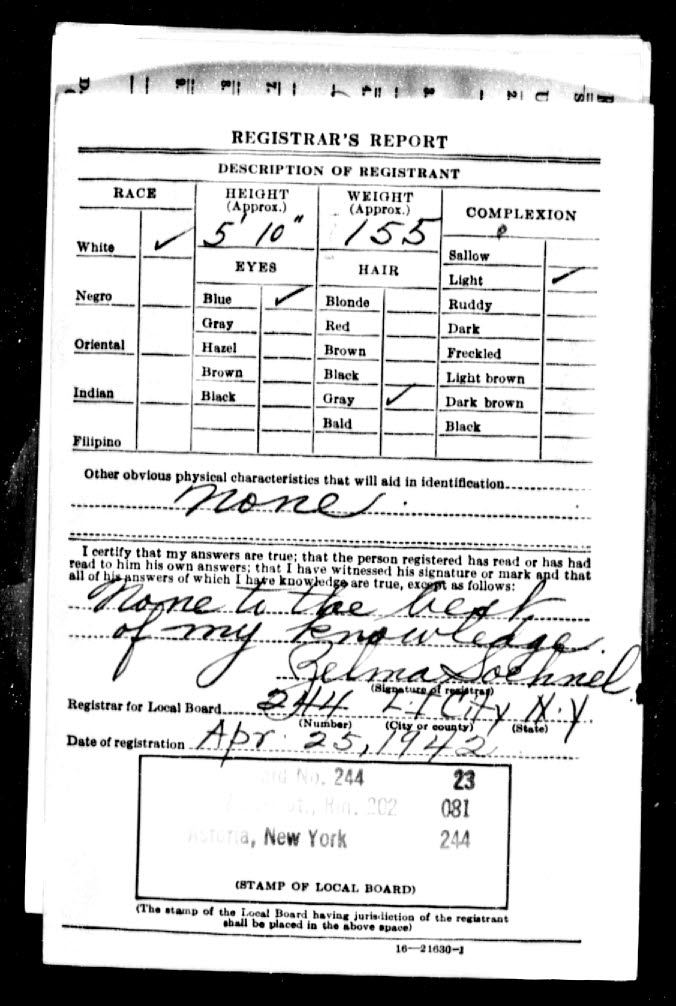 REGISTRAR'S REPORT
DESCRIPTION OF REGISTRANT
RACE
HEIGHT
(Approx.)
WEIGHT
(Approx.)
COMPLEXION
5' 10"
155
White ✓
EYES
HAIR
Sallow
Light ✓
Negro
Blue ✓
Blonde
Ruddy
Gray
Red
Dark
Oriental
Hazel
Brown
Freckled
Brown
Black
Light brown
Indian
Black
Gray ✓
Dark brown
Bald
Black
Filipino
Other obvious physical characteristics that will aid in identification
None
I certify that my answers are true; that the person registered has read or has had
read to him his own answers; that I have witnessed his signature or mark and that
all of his answers of which I have knowledge are true, except as follows:
None to the best
of my knowledge.
Belma Soehnel
(Signature of registrar)
Registrar for Local Board 244 L I City N.Y
(Number) (City or county) (State)
Date of registration Apr 25, 1942
No. 244 23
Rm. 202 081
Astoria, New York 244
(STAMP OF LOCAL BOARD)
(The stamp of the Local Board having jurisdiction of the registrant
shall be placed in the above space)
16—21630-1